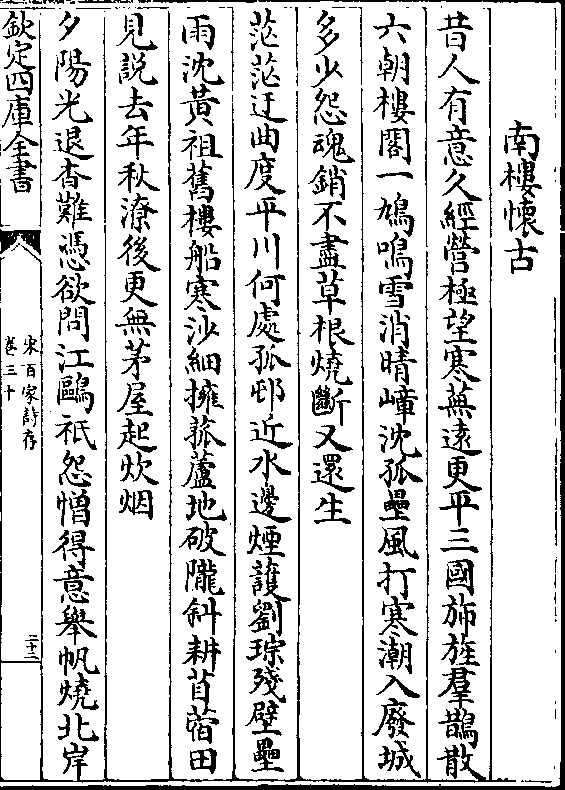 南樓懷古
昔人有意久經營極望寒蕪遠更平三國斾旌羣鵲散
六朝樓閣一鳩鳴雪消晴嶂沈孤壘風打寒潮入廢城
多少怨魂銷不盡草根燒斷又還生
茫茫迂曲度平川何處孤邨近水邊煙護劉琮殘壁壘
雨沈黃祖舊樓船寒沙細擁菰蘆地破隴斜耕苜蓿田
見說去年秋潦後更無茅屋起炊烟
夕陽光退杳難憑欲問江鷗祇怨憎得意舉帆燒北岸
欽定四庫全書
宋百家詩存
卷三十
二十二